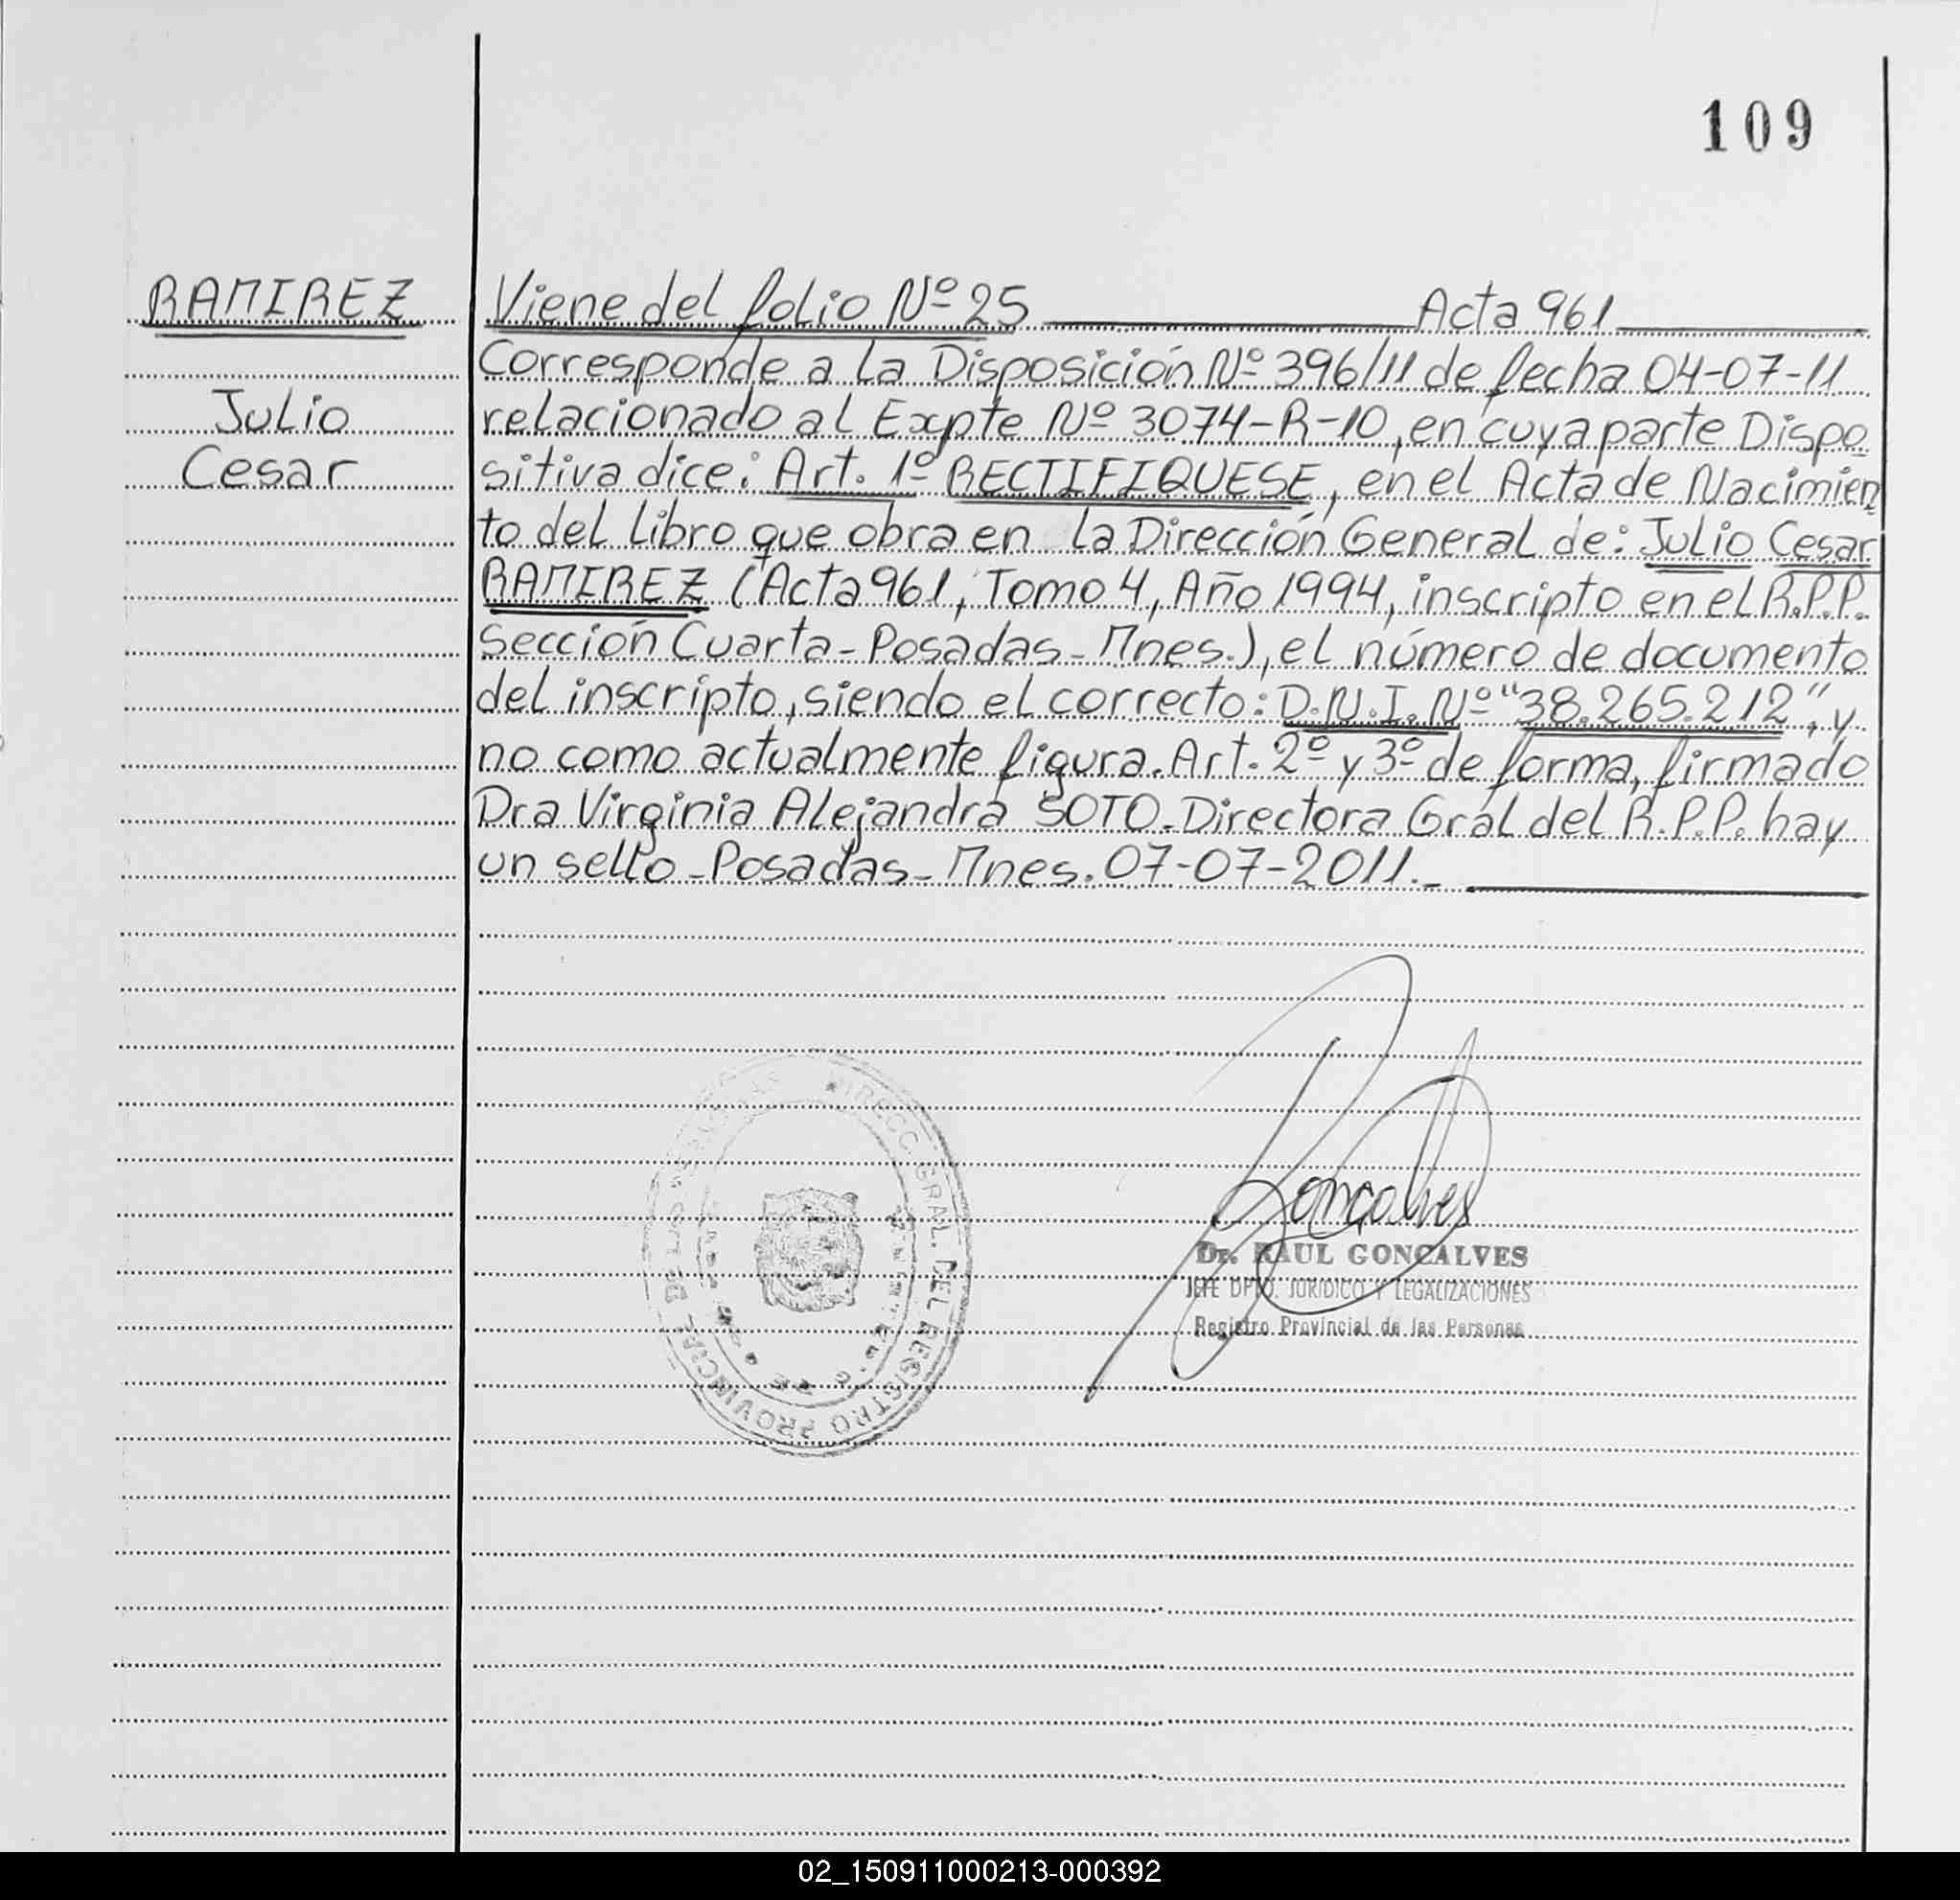 109
RAMIREZ
Julio
Cesar
Viene del folio Nº 25 Acta 961
Corresponde a la Disposición Nº 396/11 de fecha 04-07-11
relacionado al Expte Nº 3074-R-10, en cuya parte Dispo
sitiva dice: Art. 1º RECTIFIQUESE, en el Acta de Nacimien
to del libro que obra en la Dirección General de: Julio Cesar
RAMIREZ (Acta 961, Tomo 4, Año 1994, inscripto en el R.P.P.
Sección Cuarta-Posadas-Mnes.), el número de documento
del inscripto, siendo el correcto: D.N.I. Nº "38.265.212", y
no como actualmente figura. Art. 2º y 3º de forma, firmado
Dra Virginia Alejandra SOTO-Directora Gral del R.P.P. hay
un sello-Posadas-Mnes. 07-07-2011.-
DIRECC. GRAL. DEL REGISTRO PROVINCIAL DE
Goncalves
Dr. RAUL GONCALVES
JEFE DPTO. JURIDICO Y LEGALIZACIONES
Registro Provincial de las Personas
02_150911000213-000392